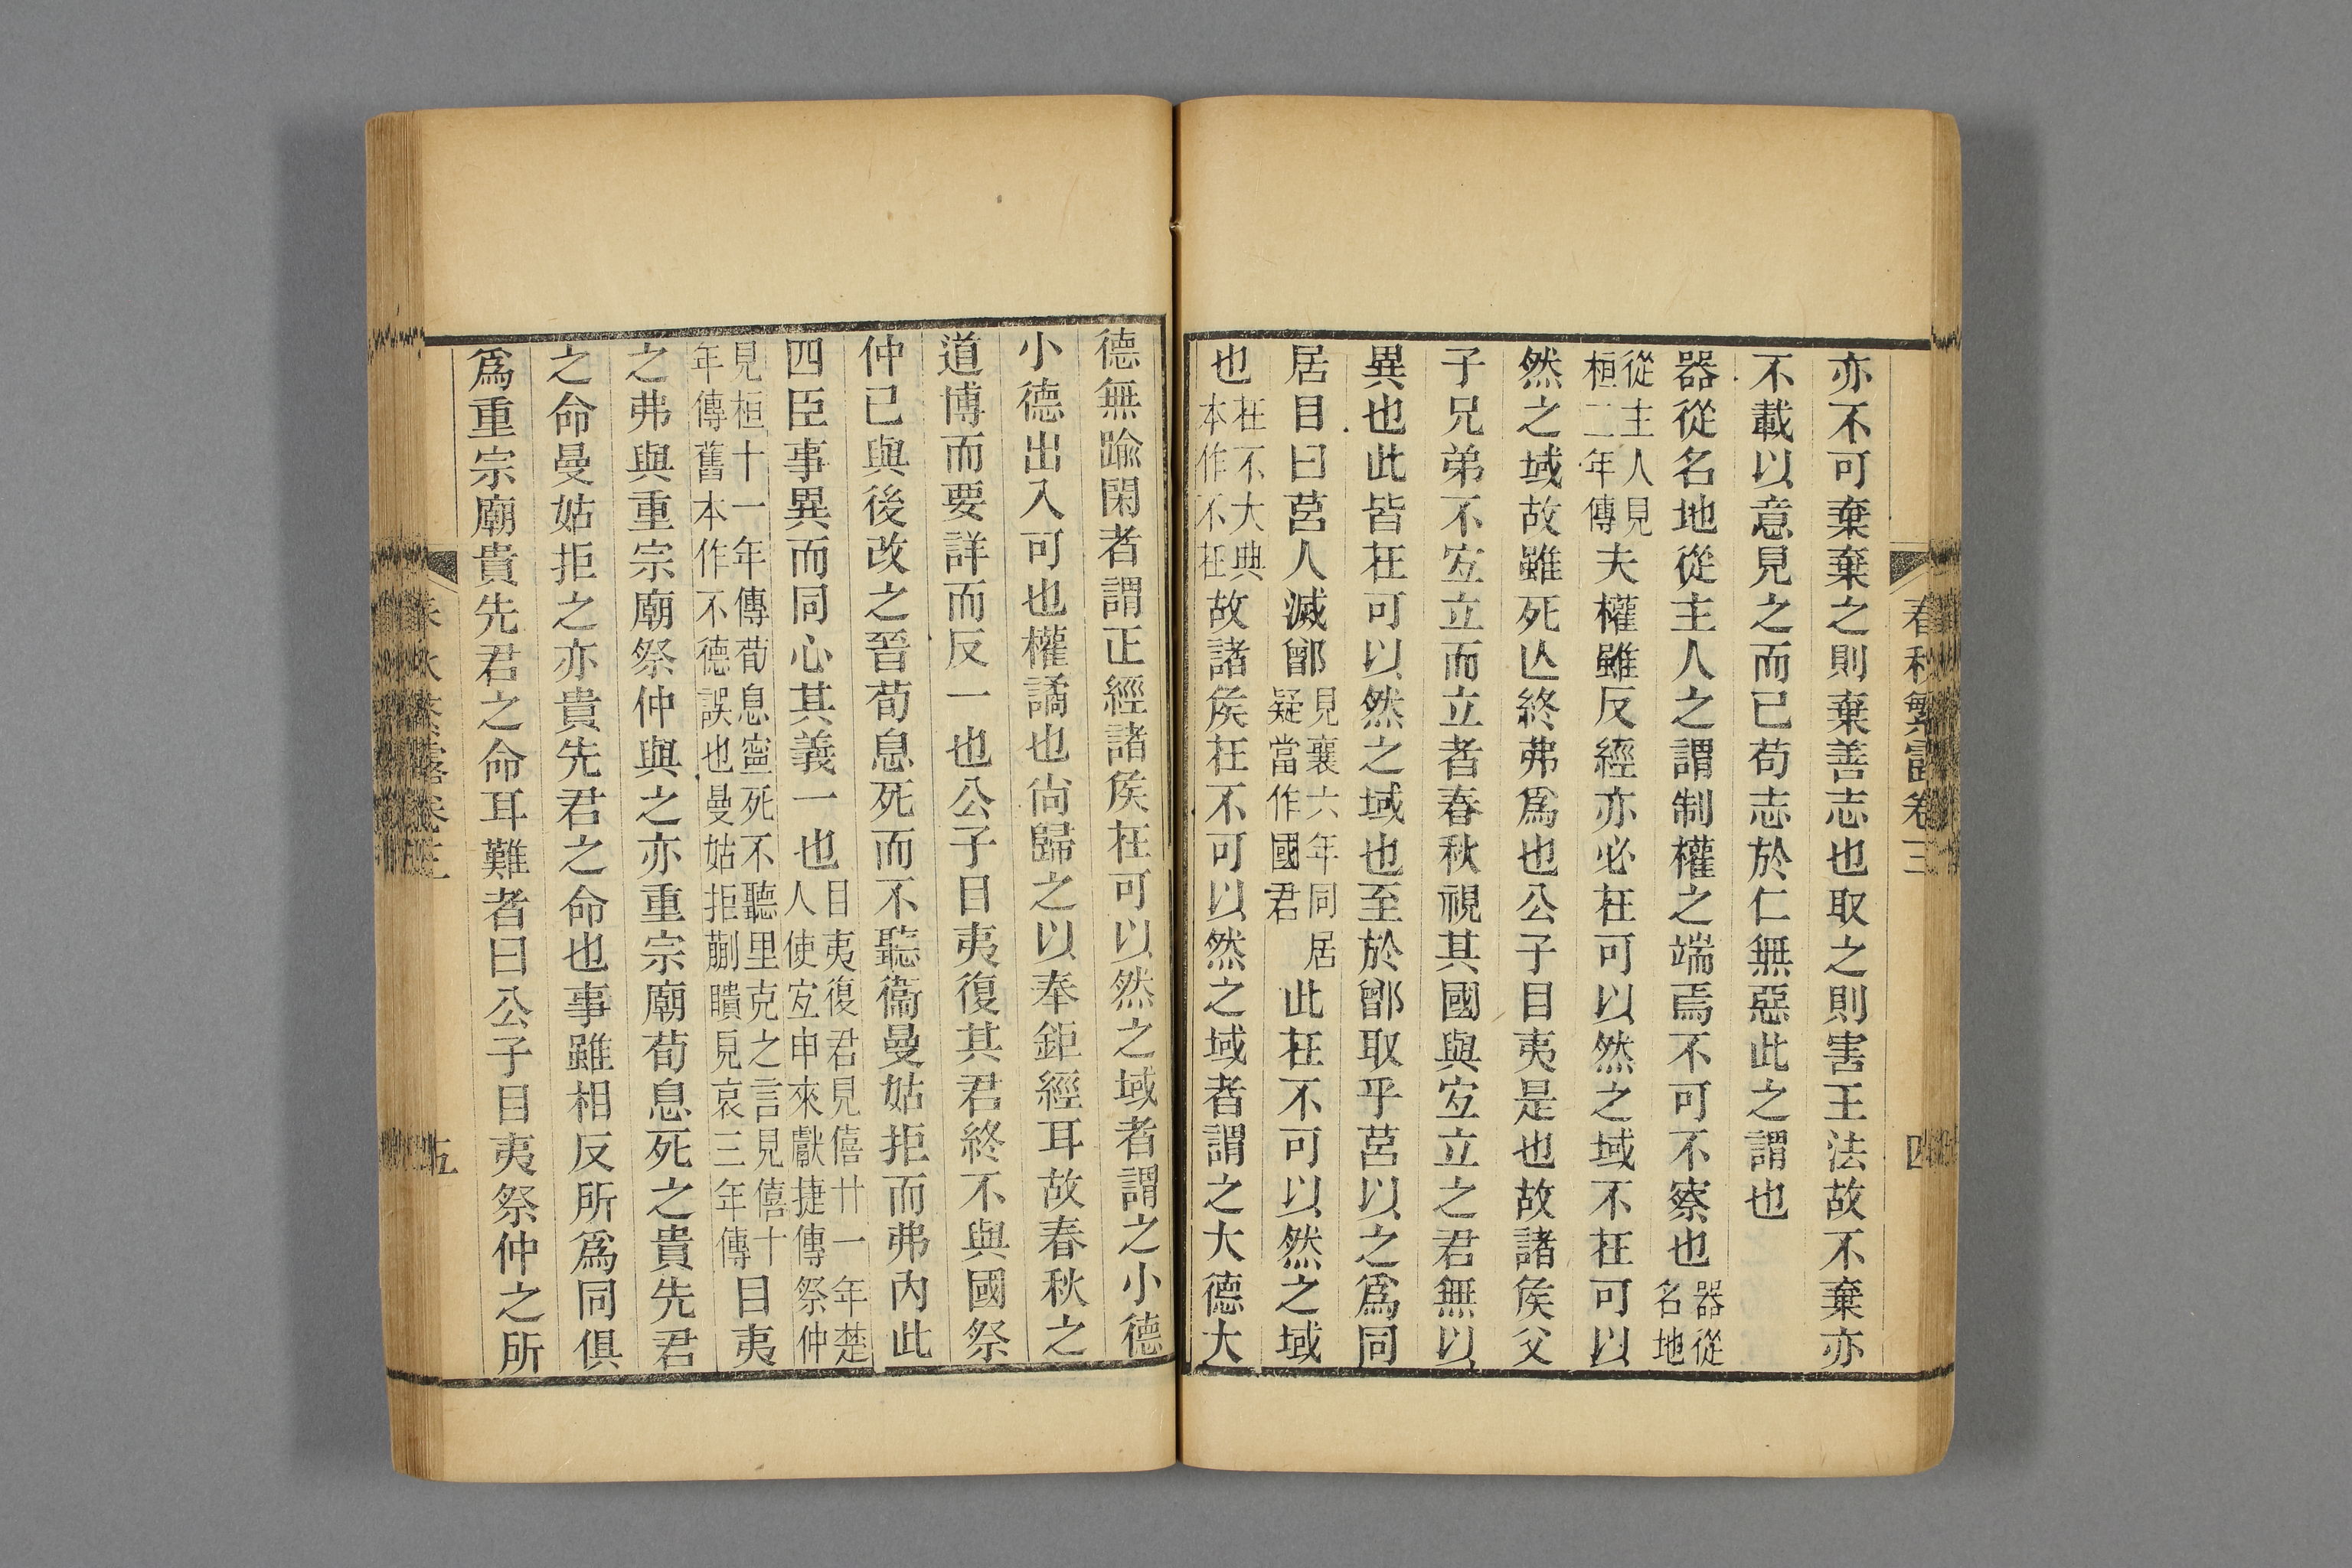 春秋繁露卷三
四
亦不可棄棄之則棄善志也取之則害王法故不棄亦
不載以意見之而已苟志於仁無惡此之謂也
器從名地從主人之謂制權之端焉不可不察也
器從
名地
從主人見
桓二年傳
夫權雖反經亦必在可以然之域不在可以
然之域故雖死亾終弗爲也公子目夷是也故諸矦父
子兄弟不宐立而立者春秋視其國與宐立之君無以
異也此皆在可以然之域也至於鄫取乎莒以之爲同
居目曰莒人滅鄫
見襄六年同居
疑當作國君
此在不可以然之域
也
在不大典
本作不在
故諸矦在不可以然之域者謂之大德大
德無踰閑者謂正經諸矦在可以然之域者謂之小德
小德出入可也權譎也尙歸之以奉鉅經耳故春秋之
道博而要詳而反一也公子目夷復其君終不與國祭
仲已與後改之晉荀息死而不聽衞曼姑拒而弗內此
四臣事異而同心其義一也
目夷復君見僖廿一年楚
人使宐申來獻捷傳祭仲
見桓十一年傳荀息寍死不聽里克之言見僖十
年傳舊本作不德誤也曼姑拒蒯聵見哀三年傳
目夷
之弗與重宗廟祭仲與之亦重宗廟荀息死之貴先君
之命曼姑拒之亦貴先君之命也事雖相反所爲同俱
爲重宗廟貴先君之命耳難者曰公子目夷祭仲之所
五